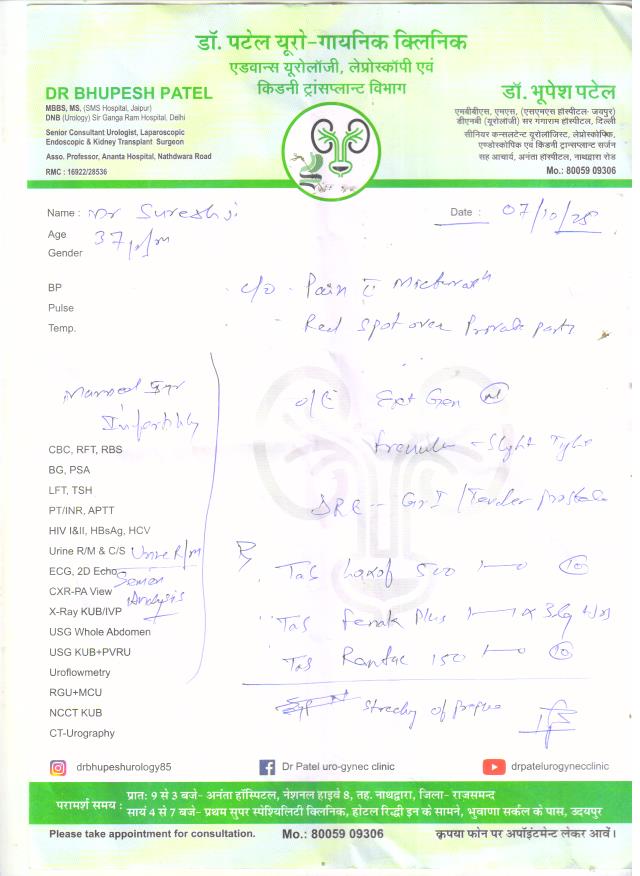 डॉ. पटेल यूरो-गायनिक क्लिनिक
एडवान्स यूरोलॉजी, लेप्रोस्कॉपी एवं
किडनी ट्रांसप्लान्ट विभाग
DR BHUPESH PATEL
MBBS, MS, (SMS Hospital, Jaipur)
DNB (Urology) Sir Ganga Ram Hospital, Delhi
Senior Consultant Urologist, Laparoscopic
Endoscopic & Kidney Transplant Surgeon
Asso. Professor, Ananta Hospital, Nathdwara Road
RMC : 16922/28536
डॉ. भूपेश पटेल
एमबीबीएस, एमएस, (एसएमएस हॉस्पीटल- जयपुर)
डीएनबी (यूरोलॉजी) सर गंगाराम हॉस्पीटल, दिल्ली
सीनियर कन्सलटेन्ट यूरोलॉजिस्ट, लेप्रोस्कोपिक,
एण्डोस्कोपिक एवं किडनी ट्रान्सप्लान्ट सर्जन
सह आचार्य, अनंता हॉस्पीटल, नाथद्वारा रोड
Mo.: 80059 09306
Name : Mr Suresh ji
Date : 07/10/25
Age 37 y/m
Gender
BP
Pulse
Temp.
c/o - Pain c̄ Micturatn
Red spot over Private part
Married
Infertility
O/E Ext Gen
frenulum - Slight Tight
DRE - Gr I / Tender prostate
CBC, RFT, RBS
BG, PSA
LFT, TSH
PT/INR, APTT
HIV I&II, HBsAg, HCV
Urine R/M & C/S Urine R/m
ECG, 2D Echo
CXR-PA View Semen Analysis
X-Ray KUB/IVP
USG Whole Abdomen
USG KUB+PVRU
Uroflowmetry
RGU+MCU
NCCT KUB
CT-Urography
Rx
Tab 500 1—0 10
Tab Fenak Plus 1—1 x
Tab Rantac 150 1—0 10
of prepuce
drbhupeshurology85
Dr Patel uro-gynec clinic
drpatelurogynecclinic
परामर्श समय :
प्रातः 9 से 3 बजे- अनंता हॉस्पिटल, नेशनल हाइवे 8, तह. नाथद्वारा, जिला- राजसमन्द
सायं 4 से 7 बजे- प्रथम सुपर स्पेशियलिटी क्लिनिक, होटल रिद्धी इन के सामने, भुवाणा सर्कल के पास, उदयपुर
Please take appointment for consultation. Mo.: 80059 09306 कृपया फोन पर अपॉइंटमेंट लेकर आवें।